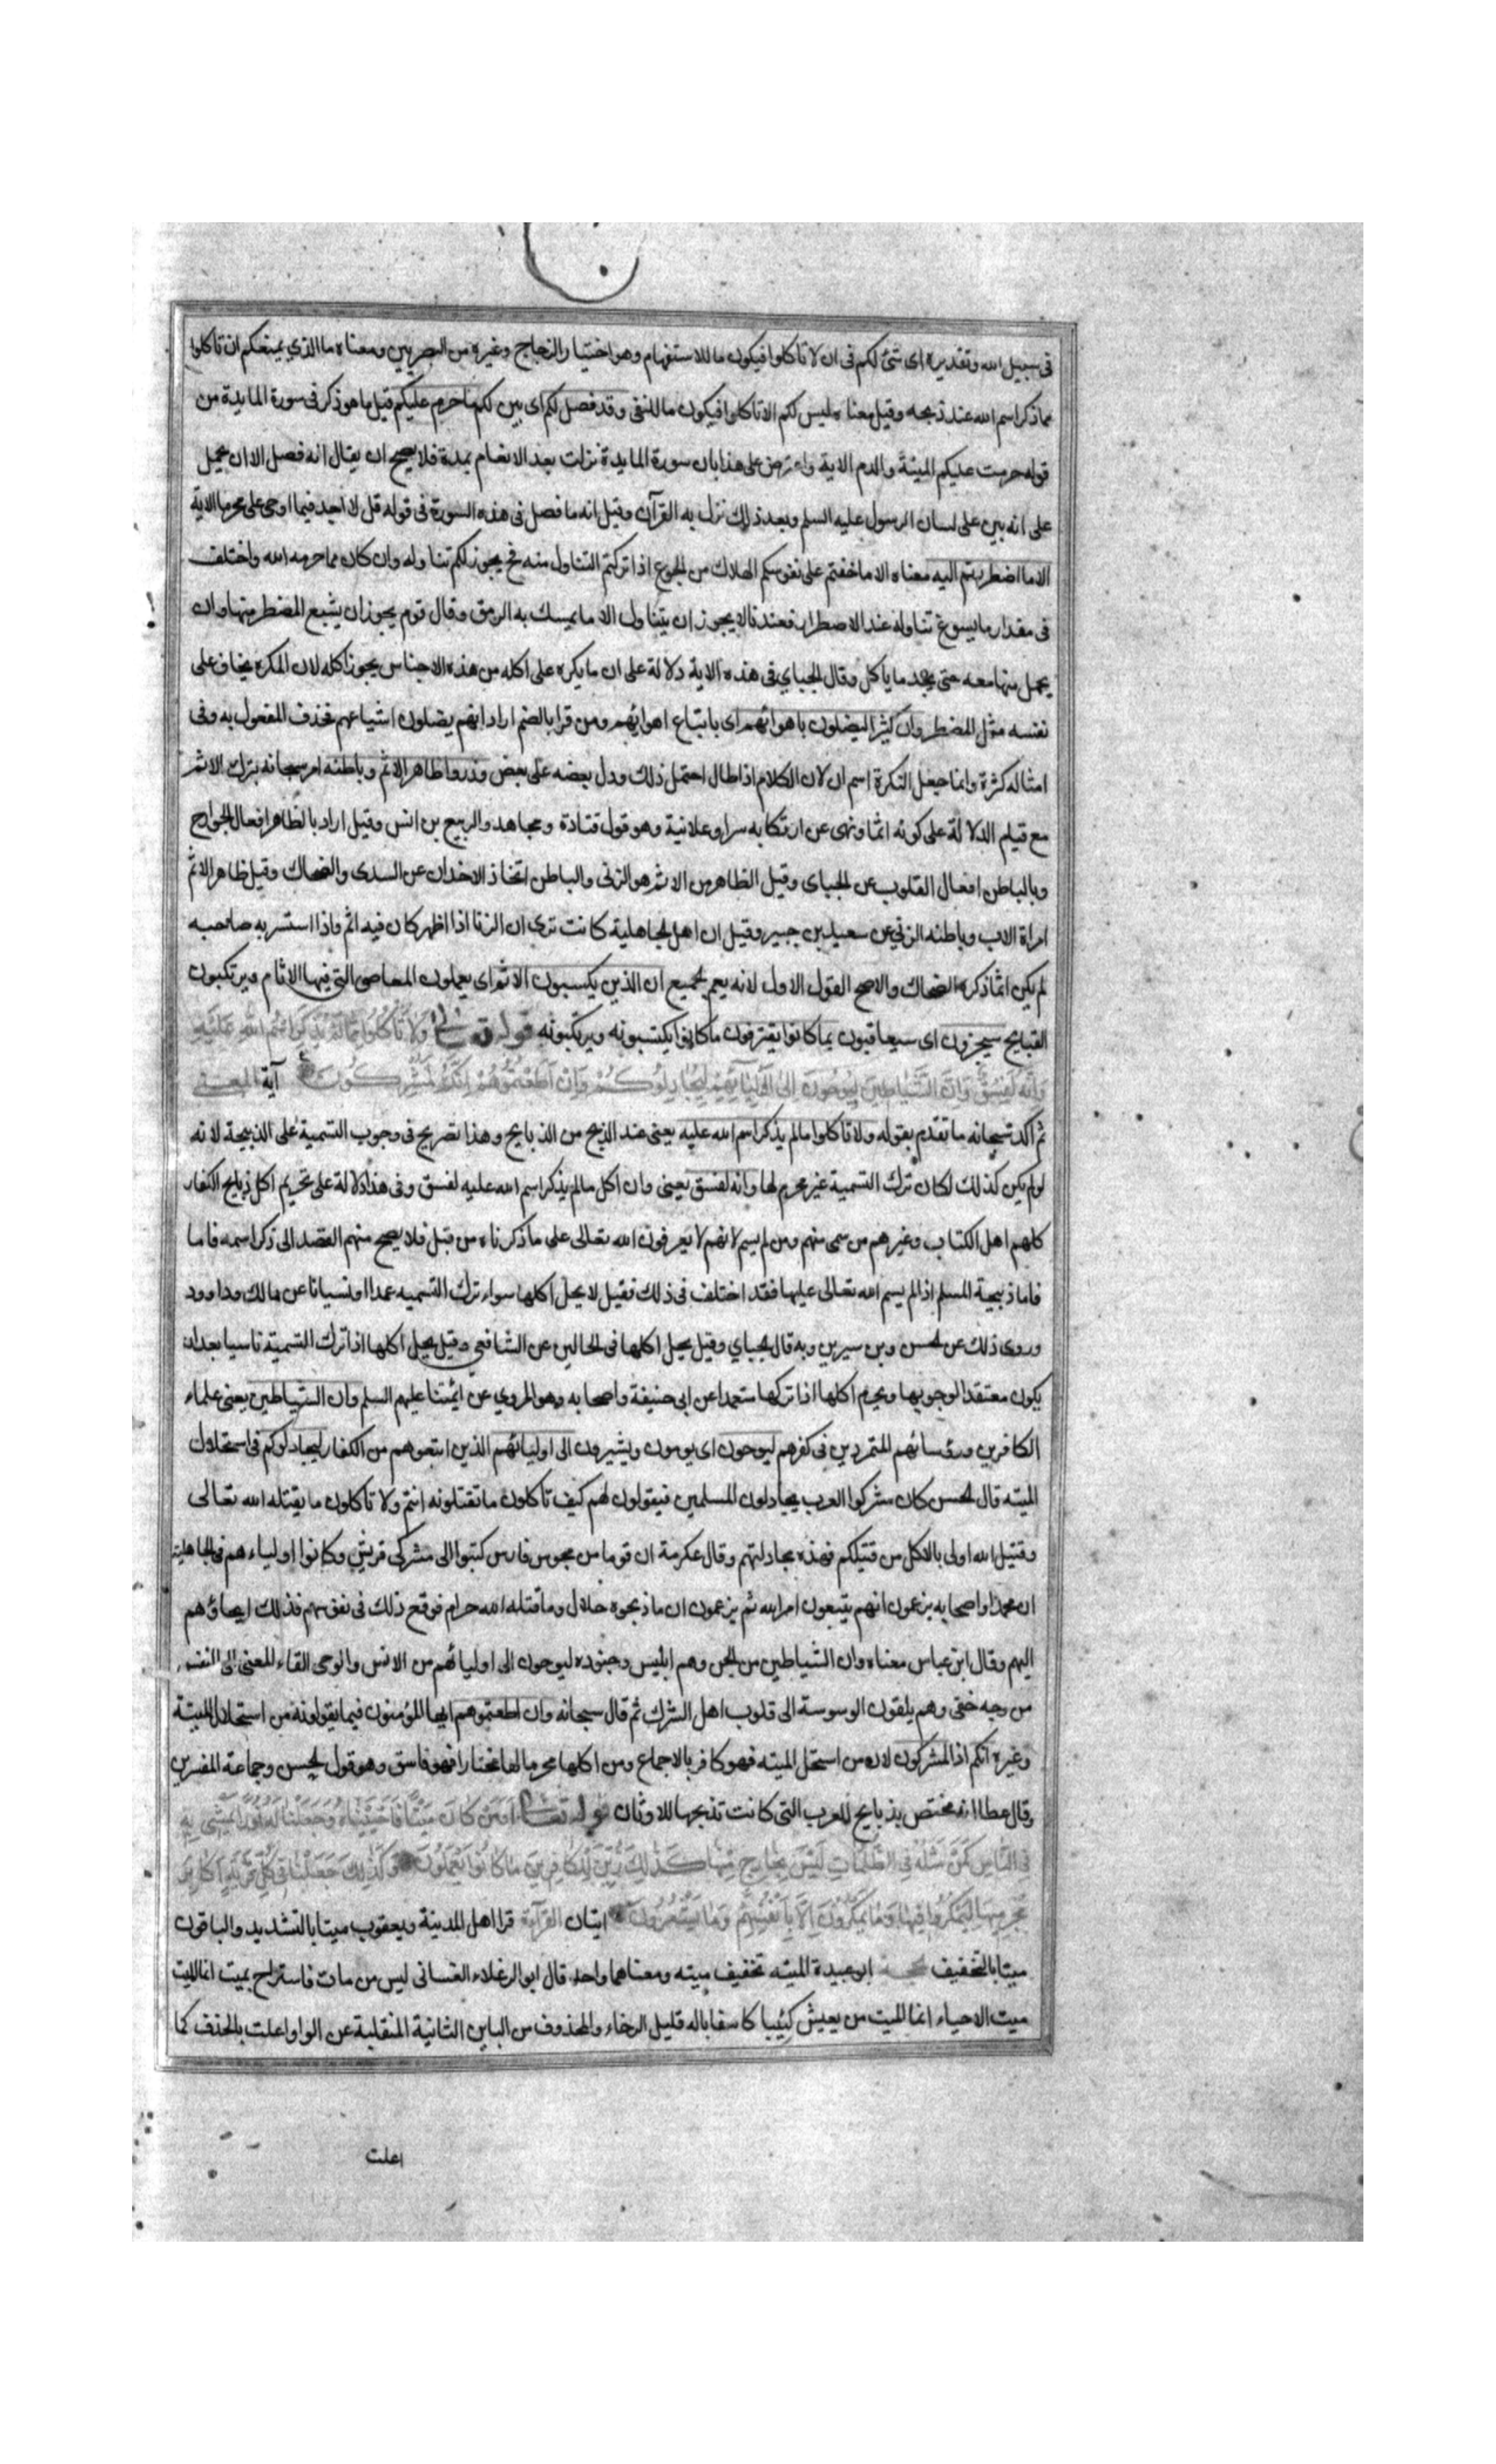 فى سبيل الله وتقديره اى شئ لكم فى ان لا تاكلوا فيكون ما للاستفهام وهو اختيار الزجاج وغيره من البصريين ومعناه ما الذي يمنعكم ان تاكلوا
مما ذكر اسم الله عند ذبحه وقيل معناه ليس لكم الا تاكلوا فيكون ما للنفى وقد فصل لكم اى بين لكم ما حرم عليكم قيل ما هو ذكر فى سورة المايدة من
قوله حرمت عليكم الميتة والدم الاية واعترض على هذا بان سورة المايدة نزلت بعد الانعام بمدة فلا يصح ان يقال انه فصل الا ان يحمل
على انه بين على لسان الرسول عليه السلم وبعد ذلك نزل به القرآن وقيل انه ما فصل فى هذه السورة فى قوله قل لا اجد فيما اوحى على محرما الاية
الا ما اضطررتم اليه معناه الا ما خفتم على نفوسكم الهلاك من الجوع اذا تركتم التناول منه فح يجوز لكم تناوله وان كان مما حرمه الله واختلف
فى مقدار ما يسوغ تناوله عند الاضطرار فعندنا لا يجوز ان يتناول الا ما يمسك به الرمق وقال قوم يجوز ان يشبع المضطر منها وان
يحمل منها معه حتى يجد ما ياكل وقال الجباي فى هذه الاية دلالة على ان ما يكره على اكله من هذه الاجناس يجوز اكله لان المكره يخاف على
نفسه مثل المضطر وان كثيرا ليضلون باهوائهم اى باتباع اهوائهم ومن قرا بالضم اراد انهم يضلون اشياعهم فحذف المفعول به وفى
امثاله كثرة وانما جعل النكرة اسم ان لان الكلام اذا طال احتمل ذلك ودل بعضه على بعض وذروا ظاهر الاثم وباطنه امر سبحانه بترك الاثم
مع قيام الدلالة على كونه اثما ونهى عن ارتكابه سرا وعلانية وهو قول قتادة ومجاهد والربيع بن انس وقيل اراد بالظاهر افعال الجوارح
وبالباطن افعال القلوب عن الجباى وقيل الظاهر من الاثم هو الزنى والباطن اتخاذ الاخدان عن السدى والضحاك وقيل ظاهر الاثم
امراة الاب وباطنه الزنى عن سعيد بن جبير وقيل ان اهل الجاهلية كانت ترى ان الزنا اذا اظهر كان فيه اثم واذا استسر به صاحبه
لم يكن اثما ذكره الضحاك والاصح القول الاول لانه يعم الجميع ان الذين يكسبون الاثم اى يعملون المعاصى التى فيها الاثام ويرتكبون
القبايح سيجزون اى سيعاقبون بما كانوا يقترفون ما كانوا يكتسبونه ويرتكبونه قوله تعالى وَلَا تَأْكُلُوا مِمَّا لَمْ يُذْكَرِ اسْمُ اللَّهِ عَلَيْهِ
وَإِنَّهُ لَفِسْقٌ وَإِنَّ الشَّيَاطِينَ لَيُوحُونَ إِلَى أَوْلِيَائِهِمْ لِيُجَادِلُوكُمْ وَإِنْ أَطَعْتُمُوهُمْ إِنَّكُمْ لَمُشْرِكُونَ آية المعنى
ثم اكد سبحانه ما تقدم بقوله ولا تاكلوا مما لم يذكر اسم الله عليه يعنى عند الذبح من الذبايح وهذا تصريح فى وجوب التسمية على الذبيحة لانه
لو لم يكن كذلك لكان ترك التسمية غير محرم لها وانه لفسق يعنى وان اكل ما لم يذكر اسم الله عليه لفسق وفى هذا دلالة على تحريم اكل ذبايح الكفار
كلهم اهل الكتاب وغيرهم من سمى منهم ومن لم يسم لانهم لا يعرفون الله تعالى على ما ذكرناه من قبل فلا يصح منهم القصد الى ذكر اسمه فاما
فاما ذبيحة المسلم اذا لم يسم الله تعالى عليها فقد اختلف فى ذلك فقيل لا يحل اكلها سواء ترك التسميه عمدا او نسيانا عن مالك وداوود
وروى ذلك عن الحسن وبن سيرين وبه قال الجباي وقيل يحل اكلها فى الحالين عن الشافعى وقيل يحل اكلها اذا ترك التسمية ناسيا بعد ان
يكون معتقدا لوجوبها ويحرم اكلها اذا تركها متعمدا عن ابى حنيفة واصحابه وهو المروي عن ائمتنا عليهم السلم وان الشياطين يعنى علماء
الكافرين ورؤسائهم المتمردين فى كفرهم ليوحون اى يومون ويشيرون الى اوليائهم الذين اتبعوهم من الكفار ليجادلوكم فى استحلال
الميته قال الحسن كان مشركوا العرب يجادلون المسلمين فيقولون لهم كيف تاكلون ما تقتلونه انتم ولا تاكلون ما يقتله الله تعالى
وقتيل الله اولى بالاكل من قتيلكم فهذه مجادلتهم وقال عكرمة ان قوما من مجوس فارس كتبوا الى مشركى قريش وكانوا اولياءهم فى الجاهلية
ان محمدا واصحابه يزعمون انهم يتبعون امر الله ثم يزعمون ان ما ذبحوه حلال وما قتله الله حرام فوقع ذلك فى نفوسهم فذلك ايحاؤهم
اليهم وقال ابن عباس معناه وان الشياطين من الجن وهم ابليس وجنوده ليوحون الى اوليائهم من الانس والوحى القاء المعنى الى النفس
من وجه خفى وهم يلقون الوسوسة الى قلوب اهل الشرك ثم قال سبحانه وان اطعتموهم ايها المؤمنون فيما يقولونه من استحلال الميتة
وغيره انكم اذا لمشركون لان من استحل الميته فهو كافر بالاجماع ومن اكلها محرما لها مختارا فهو فاسق وهو قول الحسن وجماعة المفسرين
وقال عطا انه مختص بذبايح العرب التى كانت تذبحها للاوثان قوله تعالى أَوَمَنْ كَانَ مَيْتًا فَأَحْيَيْنَاهُ وَجَعَلْنَا لَهُ نُورًا يَمْشِي بِهِ
فِي النَّاسِ كَمَنْ مَثَلُهُ فِي الظُّلُمَاتِ لَيْسَ بِخَارِجٍ مِنْهَا كَذَلِكَ زُيِّنَ لِلْكَافِرِينَ مَا كَانُوا يَعْمَلُونَ وَكَذَلِكَ جَعَلْنَا فِي كُلِّ قَرْيَةٍ أَكَابِرَ
مُجْرِمِيهَا لِيَمْكُرُوا فِيهَا وَمَا يَمْكُرُونَ إِلَّا بِأَنْفُسِهِمْ وَمَا يَشْعُرُونَ ايتان القرآءة قرا اهل المدينة ويعقوب ميتا بالتشديد والباقون
ميتا بالتخفيف ابو عبيدة الميته تخفيف ميته ومعناهما واحد قال ابو الرغلاء الغسانى ليس من مات فاستراح بميت انما الميت
ميت الاحياء انما الميت من يعيش كئيبا كاسفا باله قليل الرخاء والمحذوف من اليائين الثانية المنقلبة عن الواو اعلت بالحذف كما
اعلت